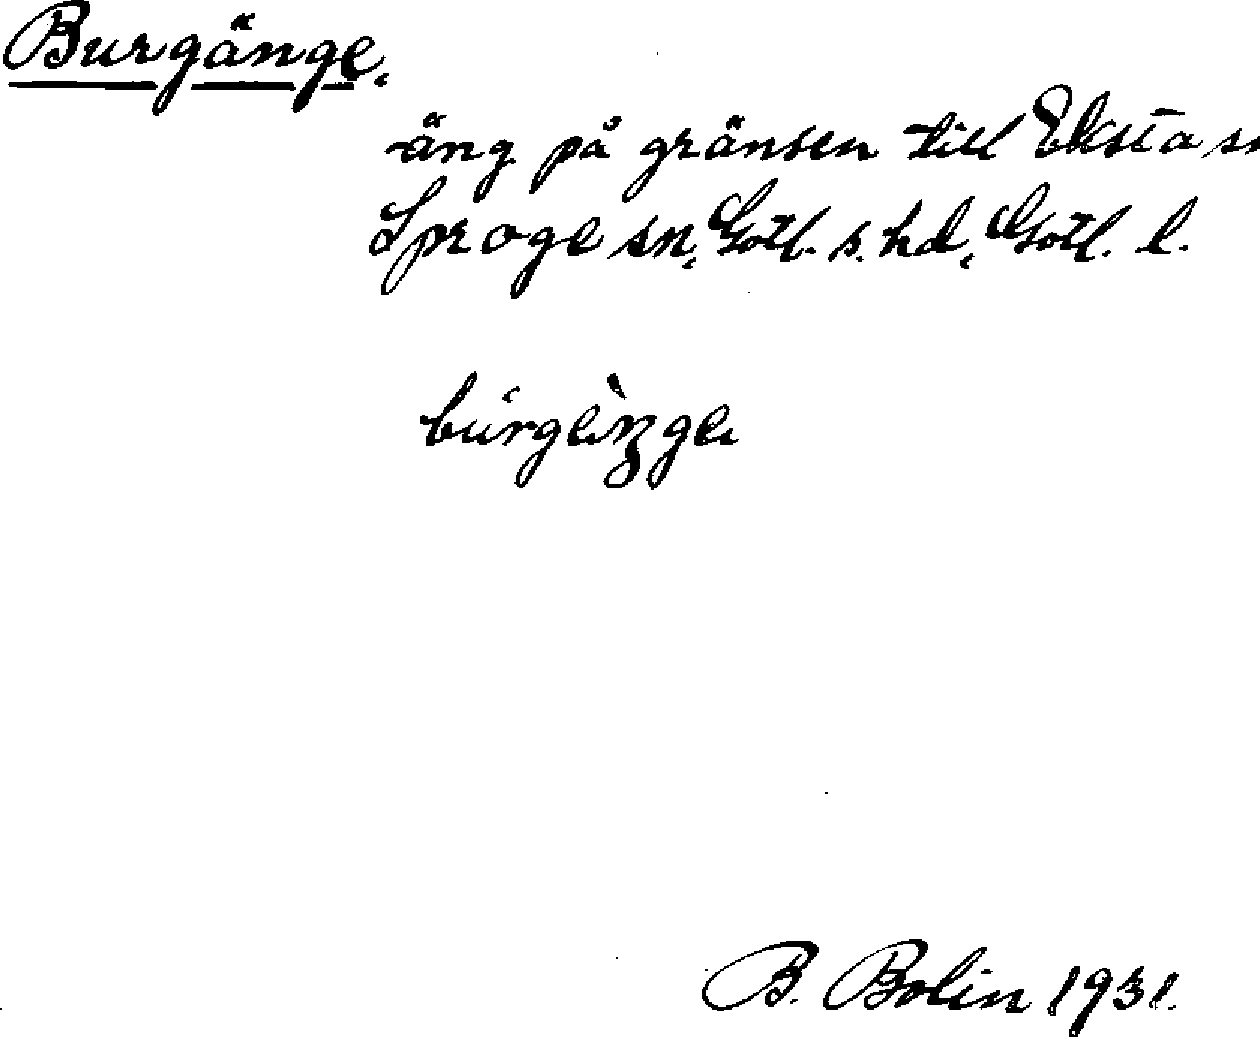 Burgänge.
äng på gränsen till Eksta sn
Sproge sn, Gotl. s. hd, Gotl. l.
B. Bolin 1931.